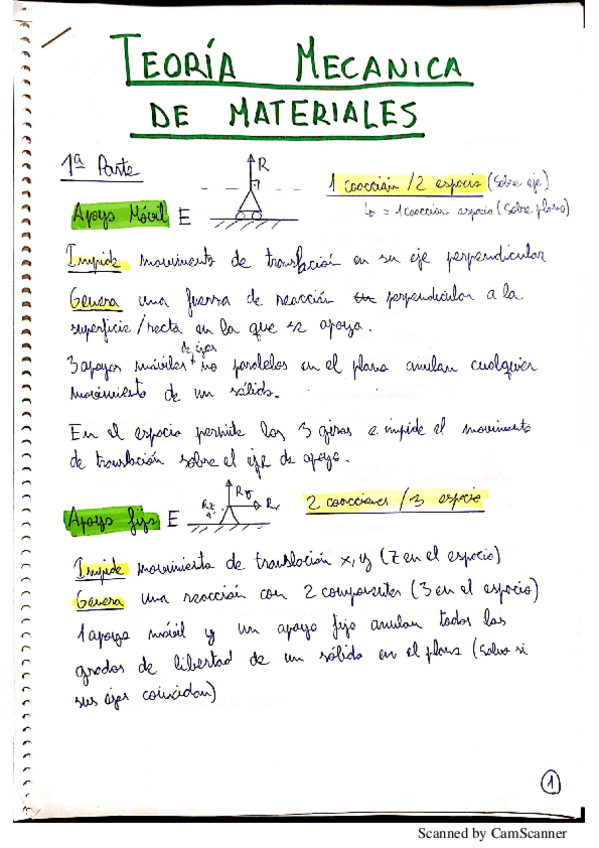 TEORÍA MECANICA
DE MATERIALES
1ª Parte
R
1 coacción / 2 espacio (sobre eje)
↳ = 1 coacción espacio (sobre plano)
Apoyo Móvil E
Impide movimiento de translación en su eje perpendicular
Genera una fuerza de reacción perpendicular a la
superficie/recta en la que se apoya.
de ejes
3 apoyos móviles + no paralelos en el plano anulan cualquier
movimiento de un sólido.
En el espacio permite los 3 giros e impide el movimiento
de translación sobre el eje de apoyo.
Apoyo fijo E
Rz Ry Rx
2 coacciones / 3 espacio
Impide movimiento de translación x, y (z en el espacio)
Genera una reacción con 2 componentes (3 en el espacio)
1 apoyo móvil y un apoyo fijo anulan todos los
grados de libertad de un sólido en el plano (salvo si
sus ejes coincidan)
1
Scanned by CamScanner